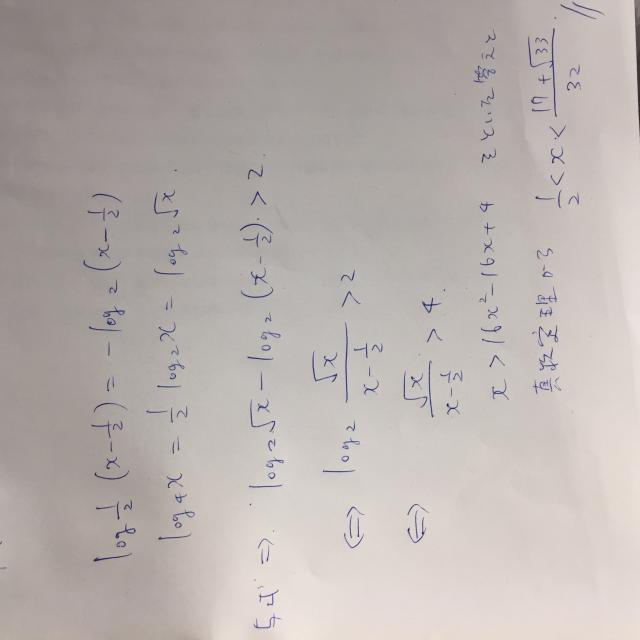 log 1/2 (x - 1/2) = - log 2 (x - 1/2)
log 4 x = 1/2 log 2 x = log 2 √x.
与式 ⇒ log 2 √x - log 2 (x - 1/2) > 2.
⇔ log 2 √x / (x - 1/2) > 2
⇔ √x / (x - 1/2) > 4.
x > 16x² - 16x + 4 をといた答えと
真数 から 1/2 < x < (17 + √33) / 32 //